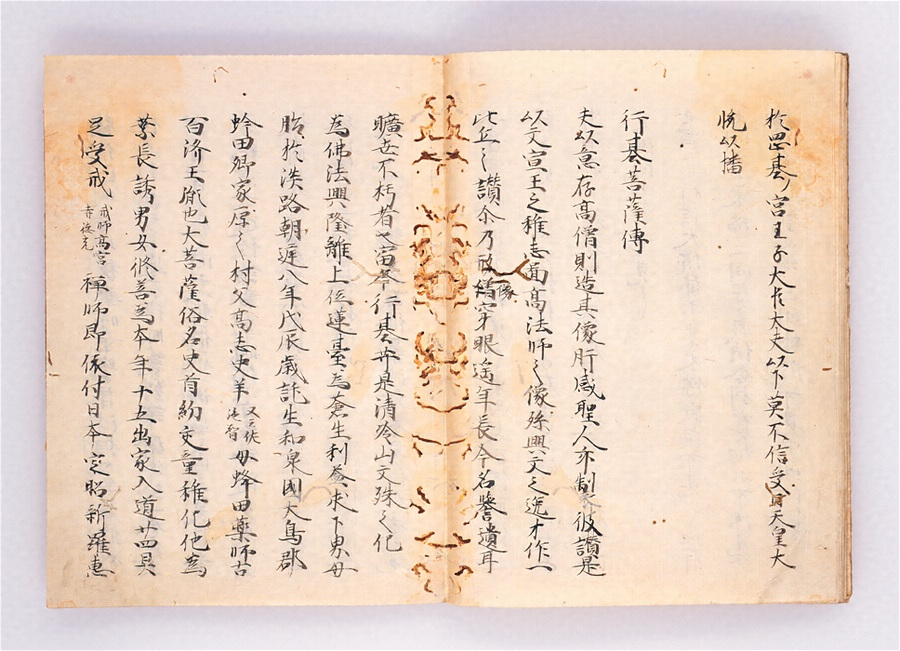 於恩基宮王子大臣大夫以下莫不信受具天皇大
悦以播
行基菩薩傳
夫以急存高僧則造其像肝感聖人亦制彼讃是
以文宣王之稚志菌高法師之像孫興文之逸才作一
比丘之讃余乃敢穿眼遙年長今名譽遺耳
曠古不朽者留今行基菩是清冷山文殊之化
為佛法興隆離上位蓮臺為蒼生利益求下界母
胎於淡路朝遲八年戊辰歳託生和泉國大鳥郡
蜂田郷家原之村父高志史羊母蜂田藥師古
百済王胤也大菩薩俗名史首幼交童稚化他為
業長誘男女修善為本年十五出家入道廿四具
足受戒 戒師高宮寺徳光 禅師即依付日本定昭新羅恵